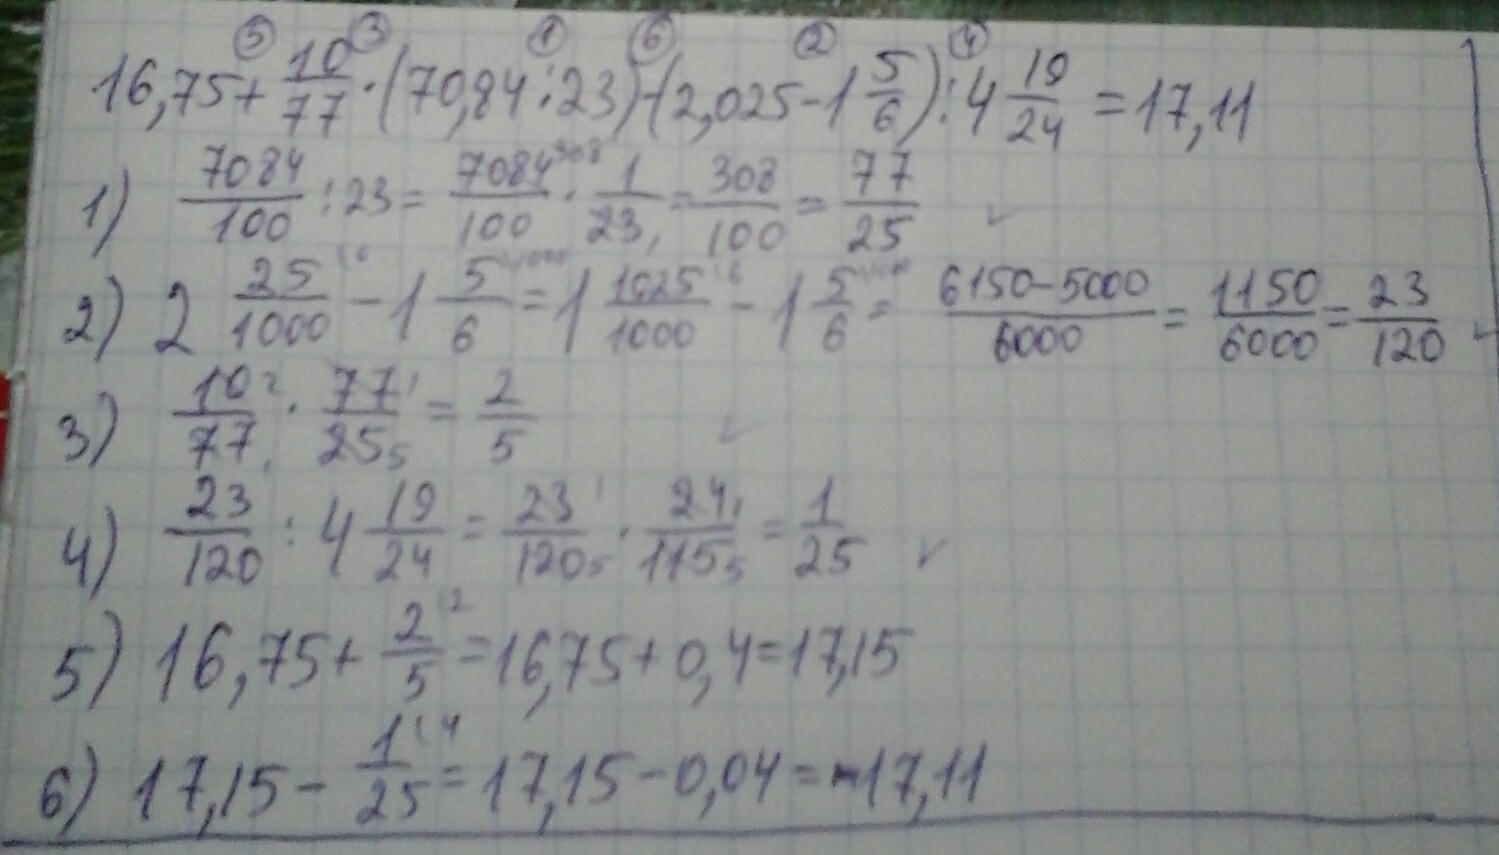 ⑤ ③ ① ⑥ ② ④
16,75 + 10/77 · (70,84 : 23) - (2,025 - 1 5/6) : 4 19/24 = 17,11
1) 7084/100 : 23 = 7084/100 ³⁰⁸ · 1/23₁ = 308/100 = 77/25 ✓
2) 2 25/1000 \6 - 1 5/6 \1000 = 1 1025/1000 \6 - 1 5/6 \1000 = 6150-5000/6000 = 1150/6000 = 23/120 ✓
3) 10²/77₁ · 77¹/25₅ = 2/5 ✓
4) 23/120 : 4 19/24 = 23¹/120₅ · 24₁/115₅ = 1/25 ✓
5) 16,75 + 2/5 \2 = 16,75 + 0,4 = 17,15
6) 17,15 - 1/25 \4 = 17,15 - 0,04 = 17,11